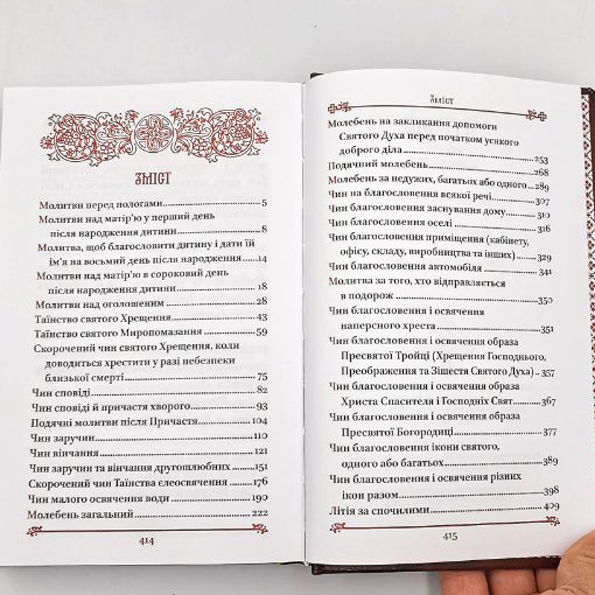 ЗМІСТ
Молитви перед пологами 5
Молитви над матір'ю у перший день
після народження дитини 8
Молитва, щоб благословити дитину і дати їй
ім'я на восьмий день після народження 14
Молитви над матір'ю в сороковий день
після народження дитини 18
Молитви над оголошеним 28
Таїнство святого Хрещення 43
Таїнство святого Миропомазання 59
Скорочений чин святого Хрещення, коли
доводиться хрестити у разі небезпеки
близької смерті 75
Чин сповіді 82
Чин сповіді й причастя хворого 93
Подячні молитви після Причастя 104
Чин заручин 110
Чин вінчання 121
Чин заручин та вінчання другошлюбних 151
Скорочений чин Таїнства єлеосвячення 176
Чин малого освячення води 190
Молебень загальний 222
414
Зміст
Молебень на закликання допомоги
Святого Духа перед початком усякого
доброго діла 253
Подячний молебень 268
Молебень за недужих, багатьох або одного 289
Чин на благословення всякої речі 307
Чин благословення заснування дому 310
Чин благословення оселі 316
Чин благословення приміщення (кабінету,
офісу, складу, виробництва та інших) 329
Чин благословення автомобіля 341
Молитва за того, хто відправляється
в подорож 350
Чин благословення і освячення
наперсного хреста 351
Чин благословення і освячення образа
Пресвятої Тройці (Хрещення Господнього,
Преображення та Зішестя Святого Духа) 357
Чин благословення і освячення образа
Христа Спасителя і Господніх Свят 367
Чин благословення і освячення образа
Пресвятої Богородиці 377
Чин благословення ікони святого,
одного або багатьох 389
Чин благословення і освячення різних
ікон разом 398
Літія за спочилими 409
415